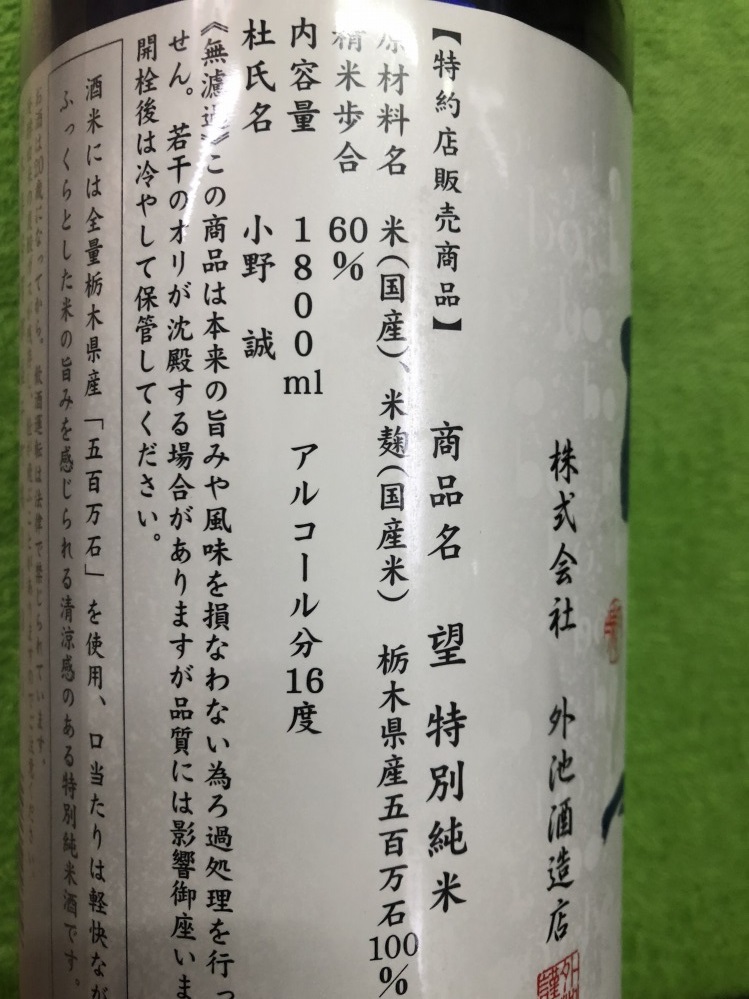 株式会社 外池酒造店
【特約店販売商品】 商品名 望 特別純米
原材料名 米(国産)、米麹(国産米) 栃木県産五百万石100%
精米歩合 60%
内容量 1800ml アルコール分16度
杜氏名 小野 誠
《無濾過》この商品は本来の旨みや風味を損なわない為ろ過処理を行っ
せん。若干のオリが沈殿する場合がありますが品質には影響御座いま
開栓後は冷やして保管してください。
酒米には全量栃木県産「五百万石」を使用、口当たりは軽快なが
ふっくらとした米の旨みを感じられる清涼感のある特別純米酒です。
お酒は20歳になってから。飲酒運転は法律で禁じられています。